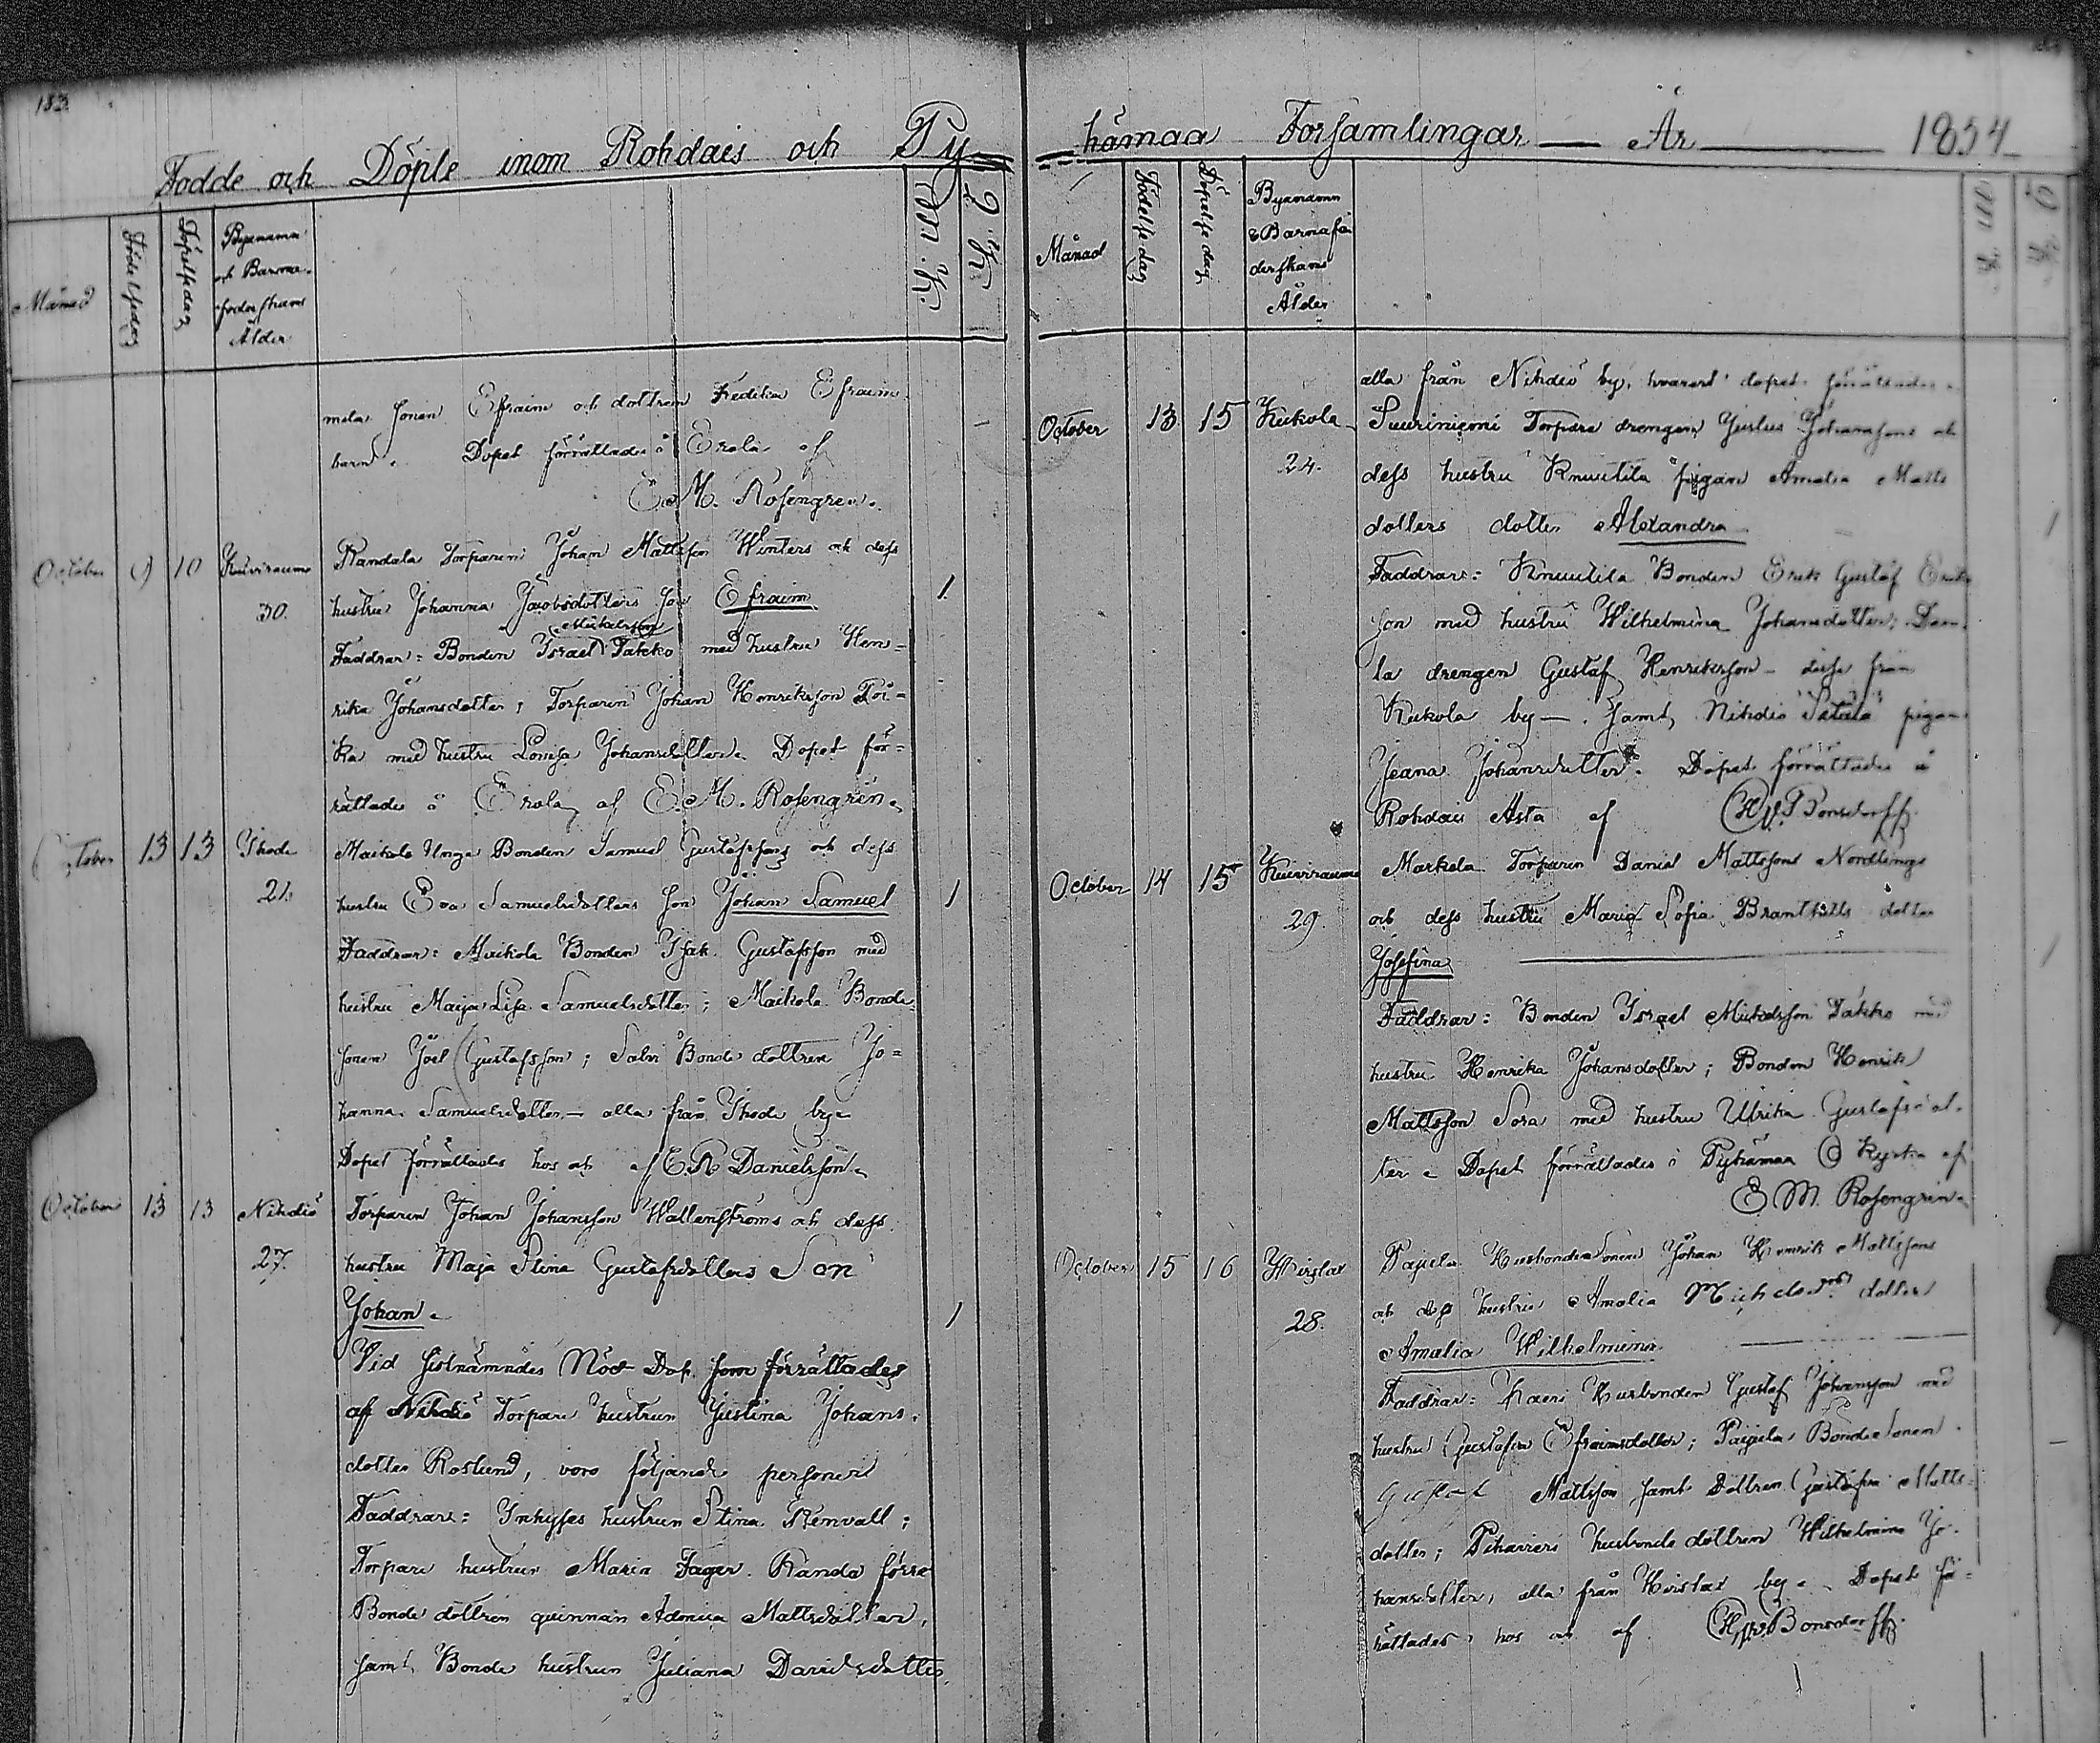 183.
Födde och Döpte inom Rohdais och Py
Månad
Födelsedag
Döpelsedag
Byanamn
och Barna-
föderskans
Ålder
M. K.
Q. K.
sonen Efraim och dottren Fredika Efraims
barn. Dopet förrättades å Erola af
E. M. Rosengren.
October 9 10 Kuiviraums Randala Torparen Johan Mattsson Winters och dess
30. hustru Johanna Jacobsdotters son Efraim 1.
Mickelsson
Faddrar: Bonden Israel Takko med hustru Hen=
rika Johansdotter; Torparen Johan Henriksson Toi=
ka med hustru Lovisa Johansdotter. Dopet för=
rättades å Erola af E. M. Rosengren.
October 13 13 Ihode Maikola Unga Bonden Samuel Gustafssons och dess
21. hustru Eva Samuelsdotters son Johan Samuel 1
Faddrar: Maikola Bonden Isak Gustafsson med
hustru Maja Lisa Samuelsdotter; Maikola Bonde
sonen Joel Gustafsson; Salvi Bonde dottren Jo=
hanna Samuelsdotter — alla från Ihode by.
Dopet förrättades hos oh af C R Danielsson.
October 13 13 Nihdiö Torparen Johan Johansson Wallenströms och dess
27. hustru Maja Stina Gustafsdotters Son
Johan. 1
Vid sistnämndes Nöd Dop som förrättades
af Nihdiö Torpare hustrun Justina Johans
dotter Roslund, voro följande personer
Faddrar: Inhyses hustrun Stina Renvall;
Torpare hustrun Maria Fager. Randa förre
Bonde dottren quinnan Adamina Mattsdotter,
samt Bonde hustrun Juliana Davidsdotter
hämaa Församlingar — År — 1854
Månad
Födelsedag
Döpelsedag
Byanamn
& Barnafö
derskans
Ålder
M K
Q K
alla från Nihdiö by, hvarest dopet förrättades.
October 13 15 Kukola Suuriniemi Torpare drengen Justus Johanssons och
24. dess hustru Knuutila pigan Amalia Matts
dotters dotter Alexandra 1
Faddrar: Knuutila Bonden Erik Gustaf Eriks
son med hustru Wilhelmina Johansdotter;
la drengen Gustaf Henriksson — desse från
Kukola by —. samt Nihdiö pigan
Jeana Johansdotter. Dopet förrättades å
Rohdais af Bonsdorff.
October 14 15 Kuiviraums Markula Torparen Daniel Mattssons Nordlings
29. och dess hustru Maria Sofia dotter
Josefina 1
Faddrar: Bonden Israel Mickelsson Takko med
hustru Henrika Johansdotter; Bonden Henrik
Mattsson Sora med hustru Ulrika Gustafsdot-
ter. Dopet förrättades i Pyhämaa Kyrka af
E M. Rosengren.
October 15 16 Hirslax Pajula Husbonde Sonen Johan Henrik Mattssons
28. och dess hustru Amalia dotter
Amalia Wilhelmina
Faddrar: Husbonden Gustaf Johansson med
hustru Gustafva Efraimsdotter; Pajula Bonde Sonen
Gustaf Mattsson samt Dottren Gustafva Matts
dotter; husbonde dottren Wilhelmina Jo-
hansdotter, alla från Hirslax by. Dopet för=
rättades hos oh af Bonsdorff.